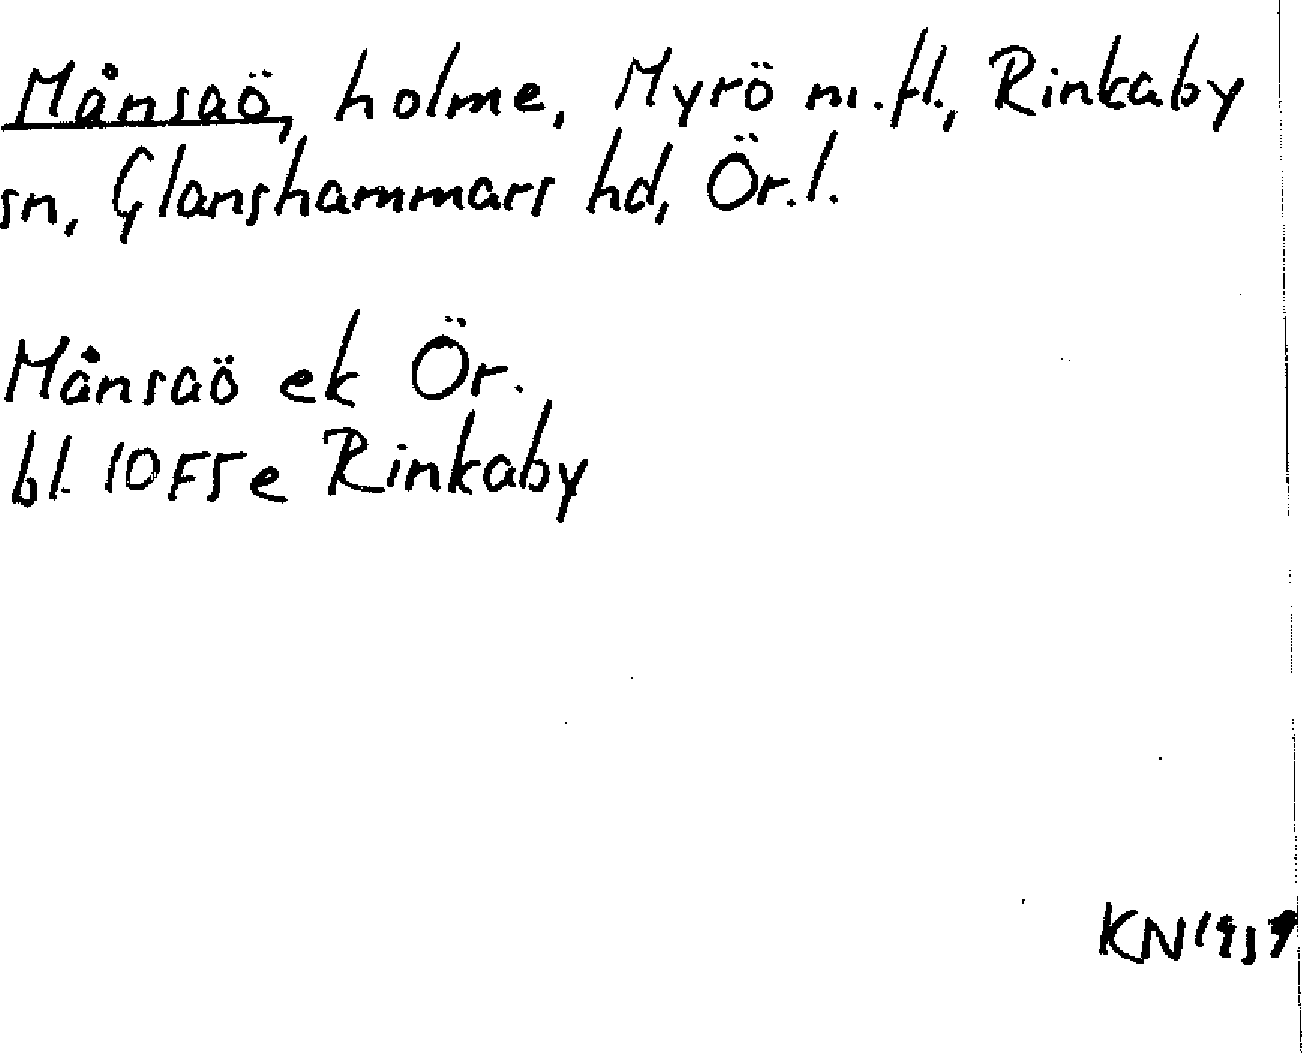 Månsaö, holme, Myrö m.fl., Rinkaby
sn, Glanshammars hd, Ör.l.
Månsaö ek Ör.
bl. 10F5e Rinkaby
KN